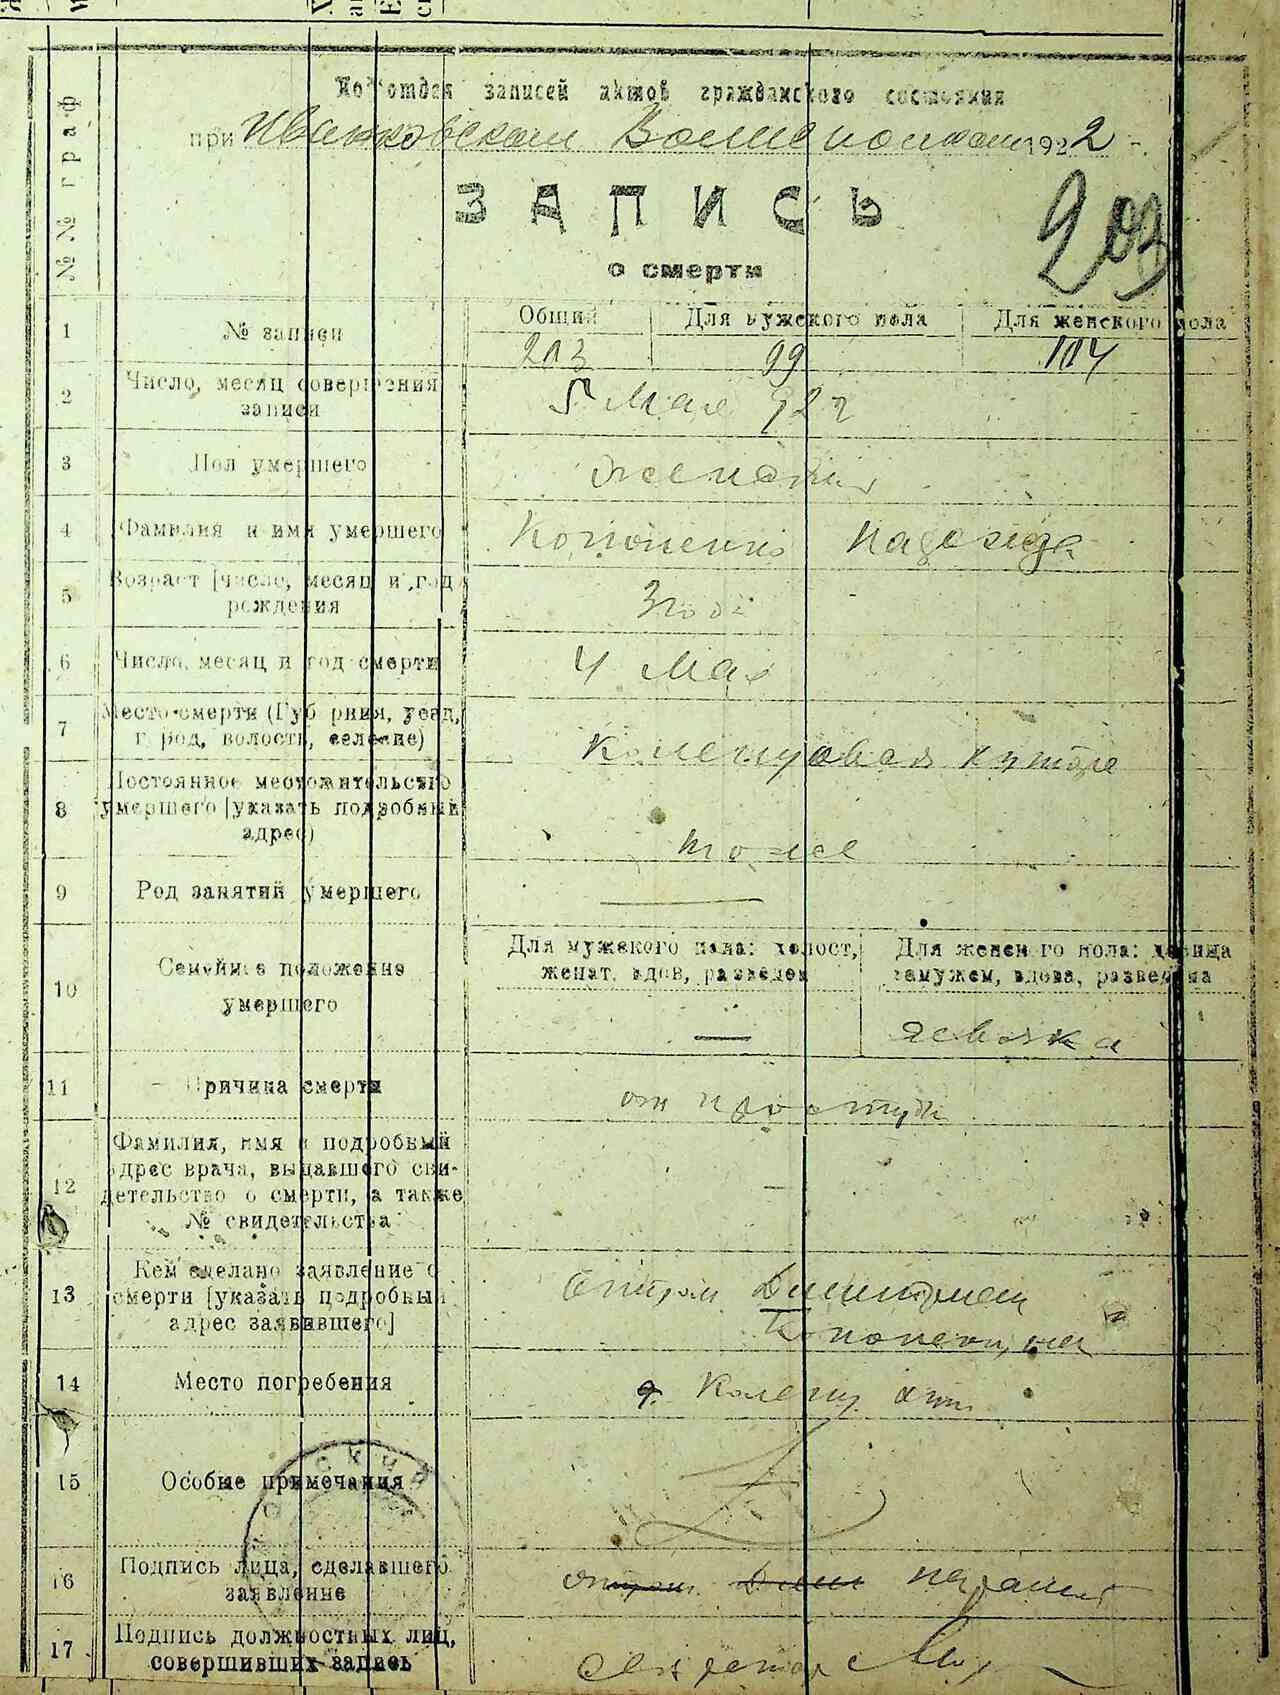 Подотдел записей актов гражданского состояния
при Ивановском Волисполкоме 1922
ЗАПИСЬ
о смерти
203
№№ граф
1 № записи
Общий Для мужского пола Для женского пола
203 99 104
2 Число, месяц совершения
записи
5 Мая 922
3 Пол умершего
4 Фамилия и имя умершего
Кононенко Надежда
5 Возраст [число, месяц и год
рождения
3 года
6 Число, месяц и год смерти
4 Мая
7 Место смерти (Губерния, уезд,
город, волость, селение)
хуторе
8 Постоянное местожительство
умершего [указать подробный
адрес)
тоже
9 Род занятий умершего
10 Семейное положение
умершего
Для мужского пола: холост,
женат, вдов, разведен
Для женского пола: девица
замужем, вдова, разведена
— девочка
11 Причина смерти
от простуды
12 Фамилия, имя и подробный
адрес врача, выдавшего сви-
детельство о смерти, а также
№ свидетельства
—
13 Кем сделано заявление о
смерти [указать подробный
адрес заявившего]
Отцом Дмитрием
14 Место погребения
15 Особые примечания
16 Подпись лица, сделавшего
заявление
17 Подпись должностных лиц,
совершивших запись
Секретарь